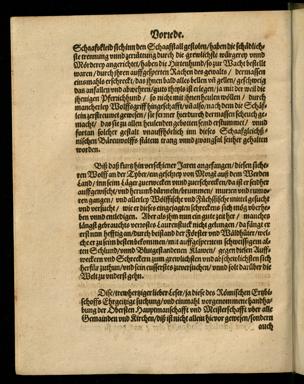 Vorrede.
Schaafskleid sich in den Schaaffstall gestolen / haben die schädlich-
ste trennung unnd zerrüttung durch die grewlichste würgerey unnd
Mörderey angerichtet / haben die Hirtenhund / so zur Wacht bestellt
waren / durch ihren auffgesperten Rachen des gewalts / dermassen
eins mahls erschreckt / das ihnen bald alles bellen unnd gellen / geschweig
dan anfallen und abwehren / guts theyls ist erlegen / ja mit der weil die
ihenigen Pferichhund / so nit mit ihnen heulen wöllen / durch
mancherley Wolffsgriff hingeschafft / viäls / nach dem die Schäf-
lein zerstrewet gewesen / sie seiner hoerdurch dermassen schreuch ge-
macht / das sie zu allen heulenden gebotten send erstummet / und
fortan solcher gestalt unauffhörlich im disen Schaafgleichß-
nischen Bärenwolffs stätem trang unnd zwangsal seither gehalten
worden.
Biß daß kurtz hin verschiener Jaren angefangen / diesen siche-
ren Wolff an der Tyber / ein geheyets von Morgt auß dem Werden
Land / inn seim Läger zuerwecken unnd zuerschrecken / das er seither
auffgewischt / und herumb dämeln / stummen / murren und umra-
ren gangen / und allerley Wölffische und Füchsische mittel gesucht
und versucht / wie er dieses ungelegenen schreckens sich mög überhe-
ben unnd enledigen. Aber als ihm nun ein gute zeit her / manches
längst gebrauchts verropfts Laurenstuck nicht gelungen / da fängt er
erst nun hefftig an durch beistand der Förster und Waldhüter / wel-
che er zu seim besten bekommen / mit auffgesperrtem scheusseligem al-
ten Schlund / unnd Blutgesänderen Klawen / gegen diesen Auff-
weckern und Schreckern zum grewlichsten und abscheulichsten sich
herfür zuthun / und sein eusserstes zuversuchen / unnd solt darüber die
Welt zu understt gehn.
Dise / trewhertziger lieber Leser / ja diese des Römischen Ertzbi-
schoffs Ehrgeitzige suchung / und einmahl vorgenommene handha-
bung der Obersten Hauptmanschafft und Meisterschafft uber alle
Gemainden und Kirchen / diß ist nicht allein hievor gewesen / sondern
auch